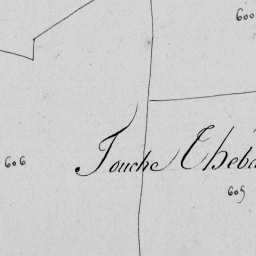 600
606
Touche Theba
605